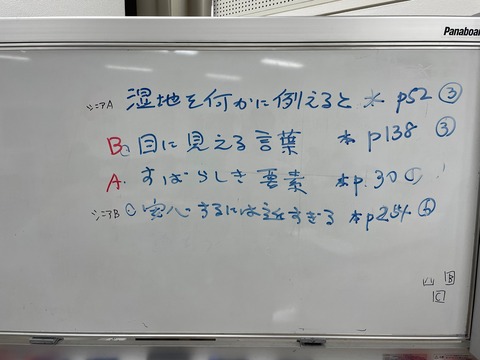 Panaboar
シニアA 湿地を何かに例えると 本 p52 ③
B 目に見える言葉 本 p138 ③
A. すばらしき要素 本p.30
シニアB 安心するには近すぎる 本p254 ⑥
B
C